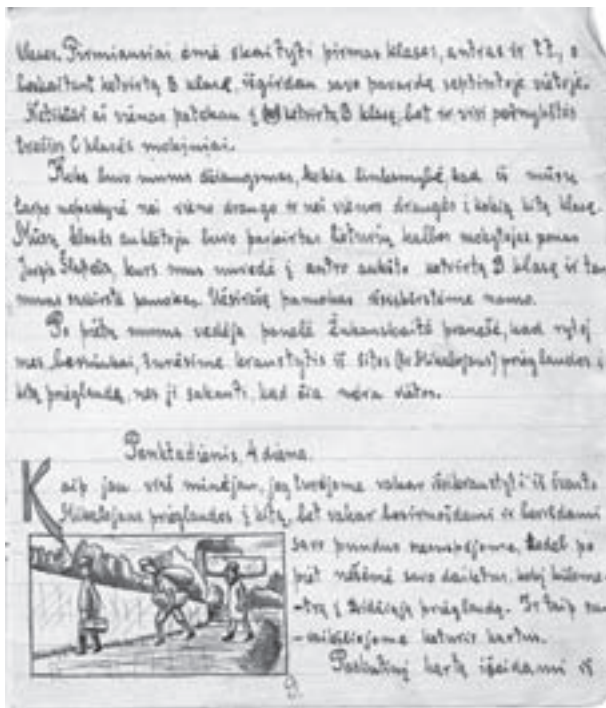 klases. Pirmiausiai ėmė skaityti pirmas klases, antras ir t.t., o
beskaitant ketvirtą B klasę, išgirdau savo pavardę septintoje vietoje.
ai vienas patekau į ketvirtą B klasę, bet ir visi
C klasės mokiniai.
Koks buvo mums džiaugsmas, kokia linksmybė, kad iš mūsų
tarpo nei vieno draugo ir nei vienos draugės į kokią kitą klasę.
Mūsų klasės auklėtoju buvo paskirtas lietuvių kalbos mokytojas ponas
kurs mus nuvedė į antro aukšto ketvirtą B klasę ir ten
mums pamokas. namo.
Po pietų mums vedėja panelė Žukauskaitė pranešė, kad rytoj
mes, berniukai, turėsime kraustytis iš šitos (Šv. Mikalojaus) prieglaudos į
kitą prieglaudą, nes ji sakanti, kad čia nėra vietos.
Penktadienis, 4 diena.
Kaip jau minėjau, jog turėjome vakar išsikraustyti iš švento
Mikalojaus prieglaudos į kitą, bet vakar ir
savo nesuspėjome, todėl po
piet nešėme savo daiktus, kokį kilome-
-trą į Didžiąją prieglaudą. Ir taip
keturis kartus.
Paskutinį kartą išeidami iš
9.